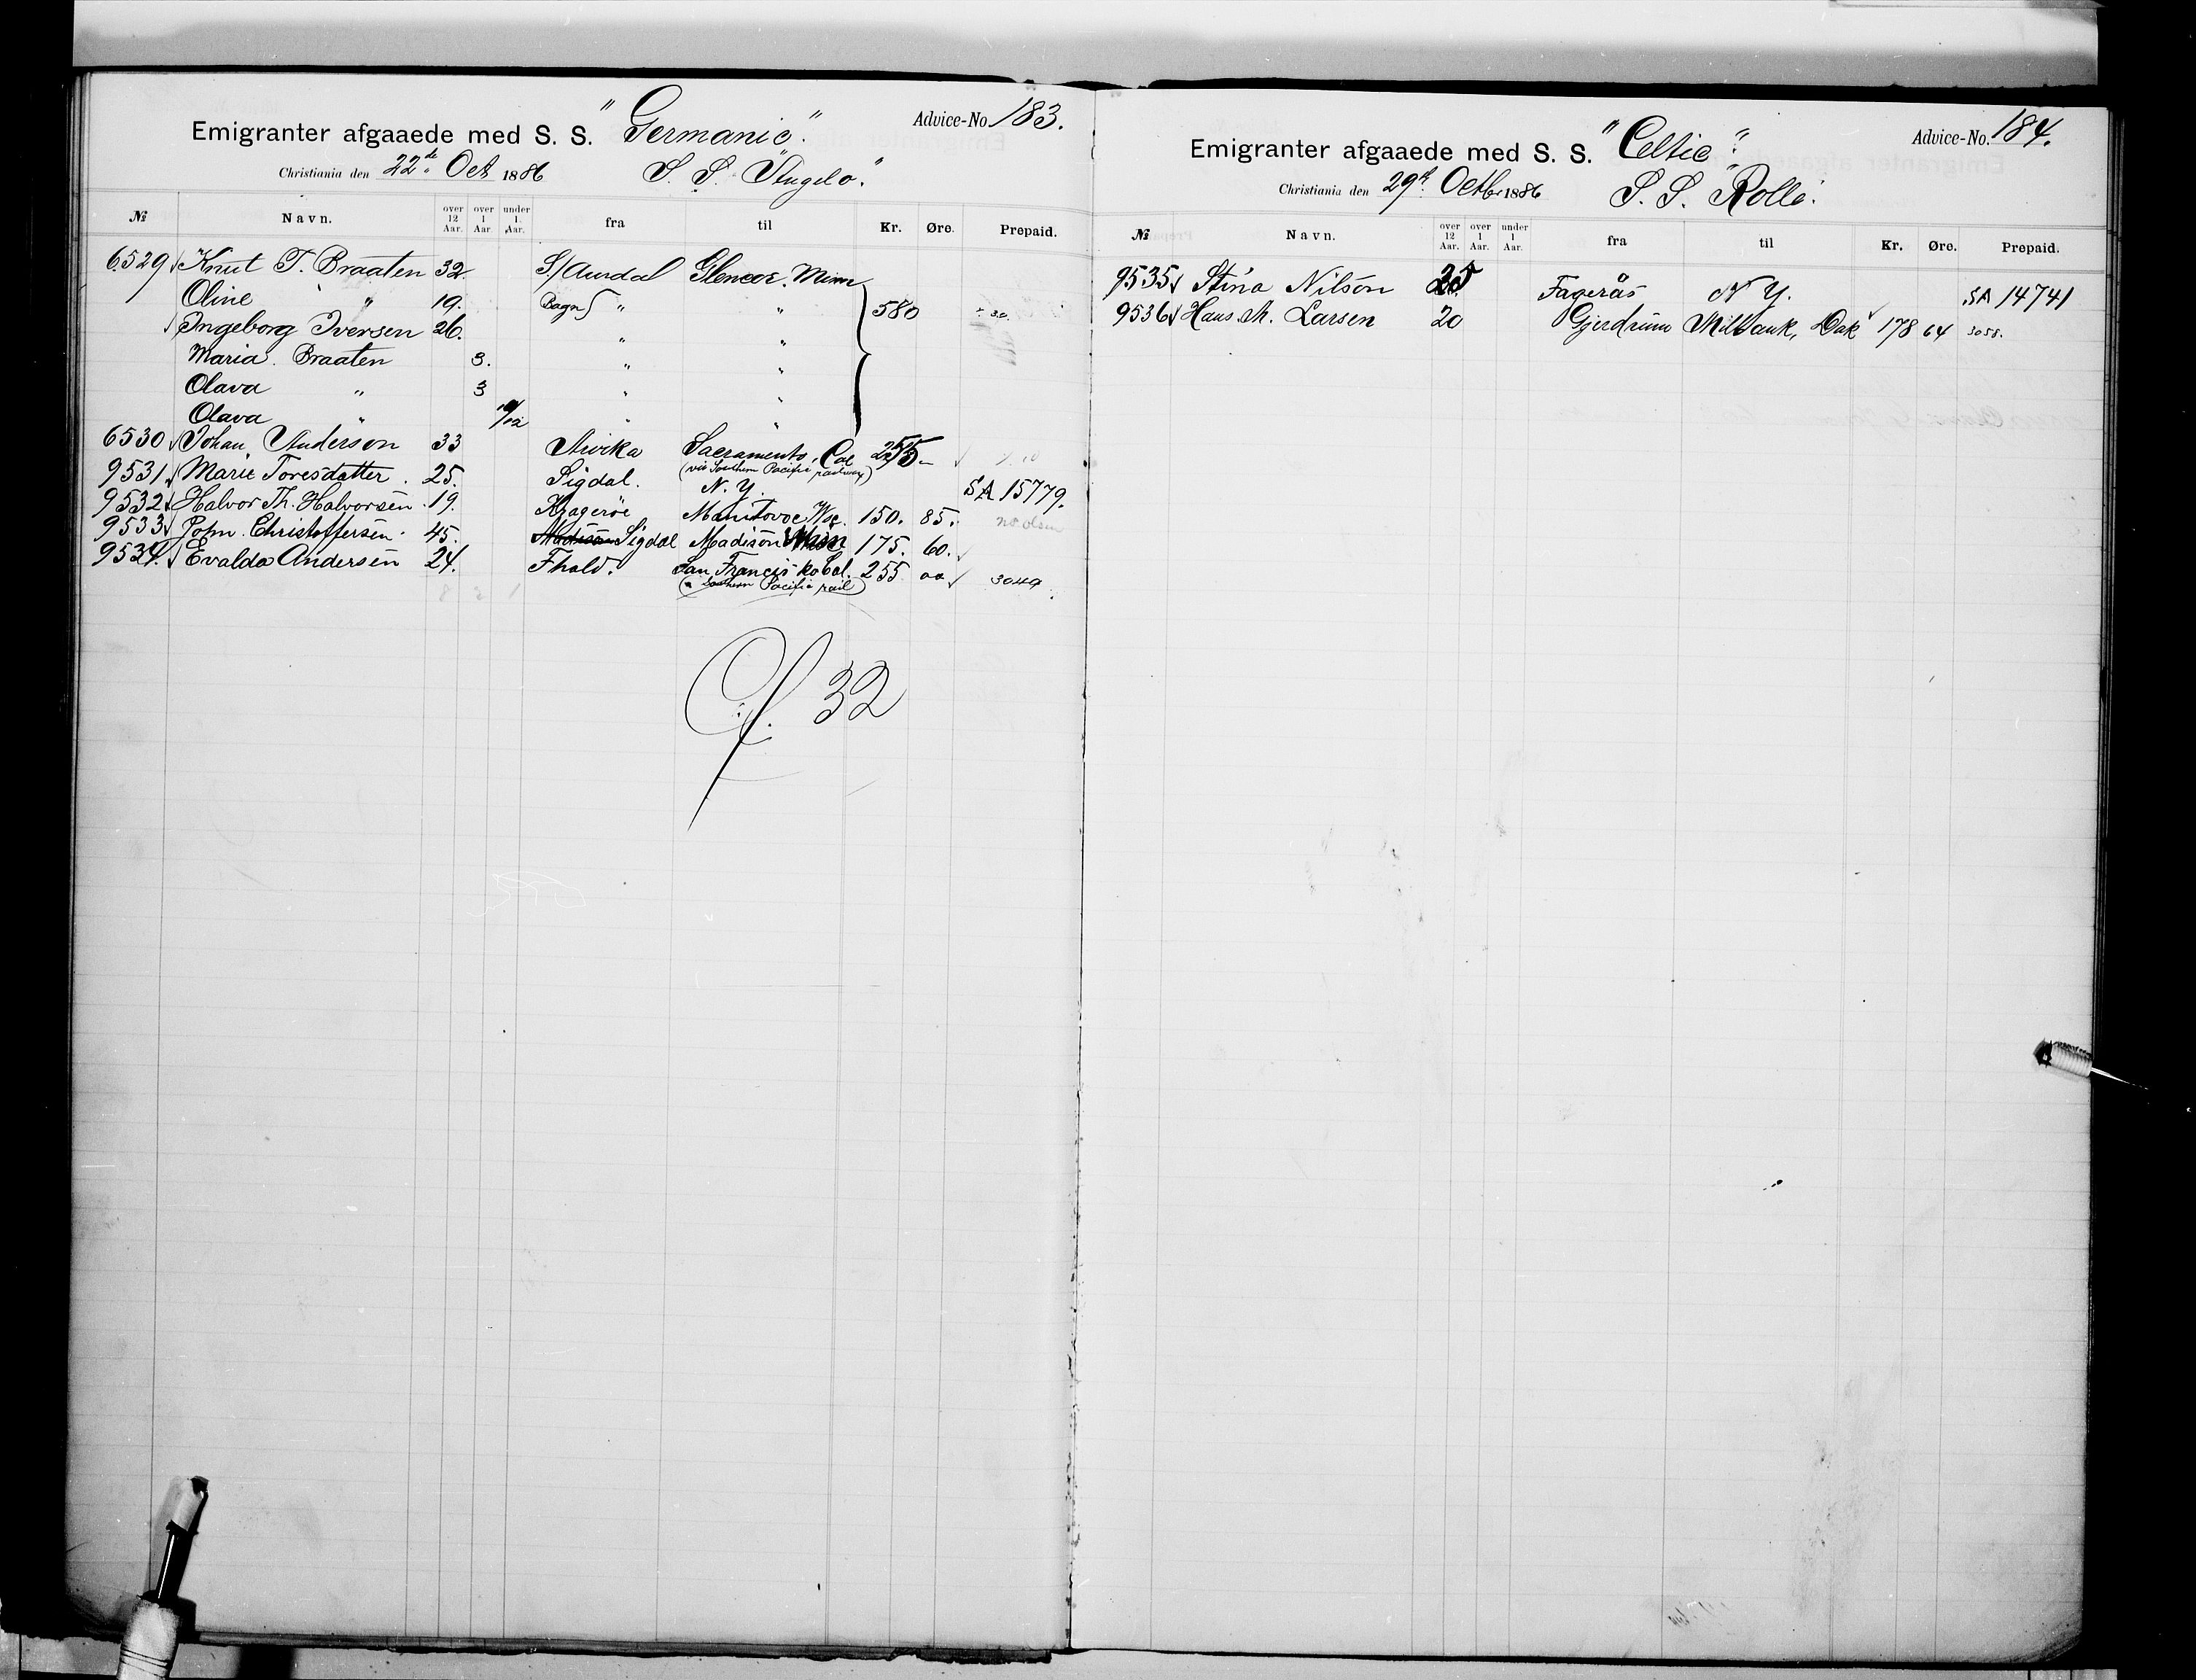 Emigranter afgaaede med S. S. "Germanic". Advice-No 183.
Christiania den 22de Oct 1886 S. S. "Angelo".
No Navn. over 12 Aar. over 1 Aar under 1 Aar. fra til Kr. Øre. Prepaid.
6529 Knut T. Braaten 32. S/Aurdal Glencoe. Minn
Oline " 19. Bagn " " 580
Ingeborg Iversen 26. " "
Maria. Braaten 3. " "
Olava " 3 " "
Olava " 10/12 " "
6530 Johan, Anderson 33 Arvika Sacramento, Cal 255 –
(via Southern Pacific railway)
9531 Marie Toresdatter. 25. Sigdal. N. Y. SA 15779.
9532 Halvor Th. Halvorsen. 19. Kragerøe Manitovoc Wsc. 150. 85.
9533 John. Christoffersen. 45. Madison Sigdal Madison Minn 175. 60.
9534. Evalda Andersen 24. Fhald. San Francis-ko Cal. 255 00 3049
(a Southern Pacific rail)
32
Emigranter afgaaede med S. S. "Celtic". Advice-No. 184.
Christiania den 29de Octbr 1886 S. S. Rollo.
No Navn. over 12 Aar. over 1 Aar. under 1 Aar. fra til Kr. Øre. Prepaid.
9535 Stina Nilson 25 Fagerås N Y. SA 14741
9536 Hans M. Larsen 20 Gjerdrum Milbank, Dak 178 64 3058.